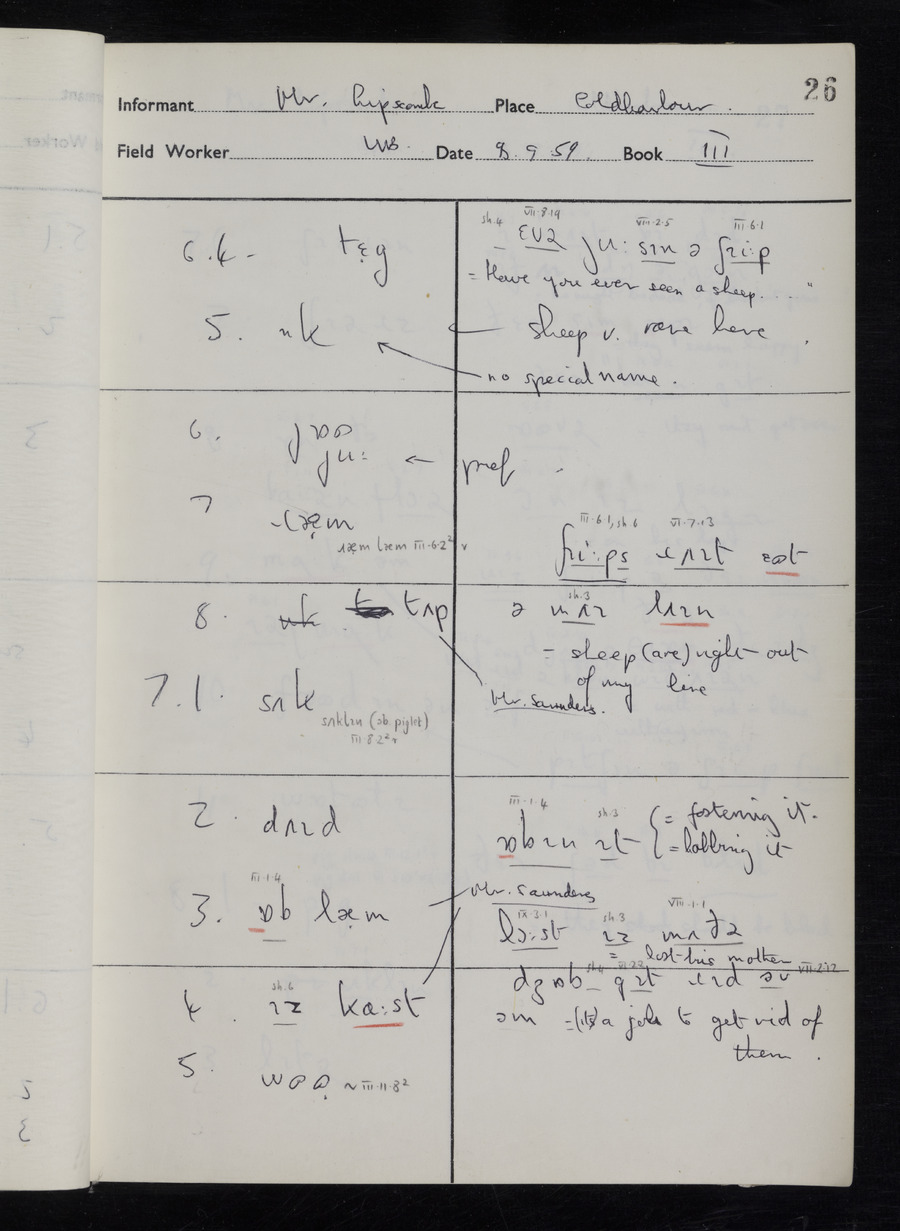 26
Informant Mr. Lipscombe Place Coldharbour.
Field Worker WB. Date 8.9.59. Book III
6.4. tɛ̣g
sh.4 VII.8.19 VIII.2.5 III.6.1
ɛvə juː sɪn ə ʃɹiːp
= Have you ever seen a sheep...."
5. nk ← sheep v. rare here.
no special name.
6. joʊ
juː ← pref.
7 ɹæ̣m
ɹæm læm III.6.2² v
III.6.1, sh.6 VI.7.13
8. tʌp
sh.3
= sheep (are) right out
of my line
Mr. Saunders.
7.1. sʌk
sʌklɪn (sb. piglet)
III.8.2² v
2. dʌɪd
III.1.4 sh.3
ɒbɪn ɪt { = fostering it.
= hobbing it
III.1.4
3. ɒb læm
Mr. Saunders
IX.3.1 sh.3 VIII.1.1
lɔːst ɪz mʌðə
= lost his mother
4. sh.6
ɪz kɑːst
dʒɒb gɪt ɹɪd əv
əm = (it's) a job to get rid of
them.
5. ~ III.11.8²